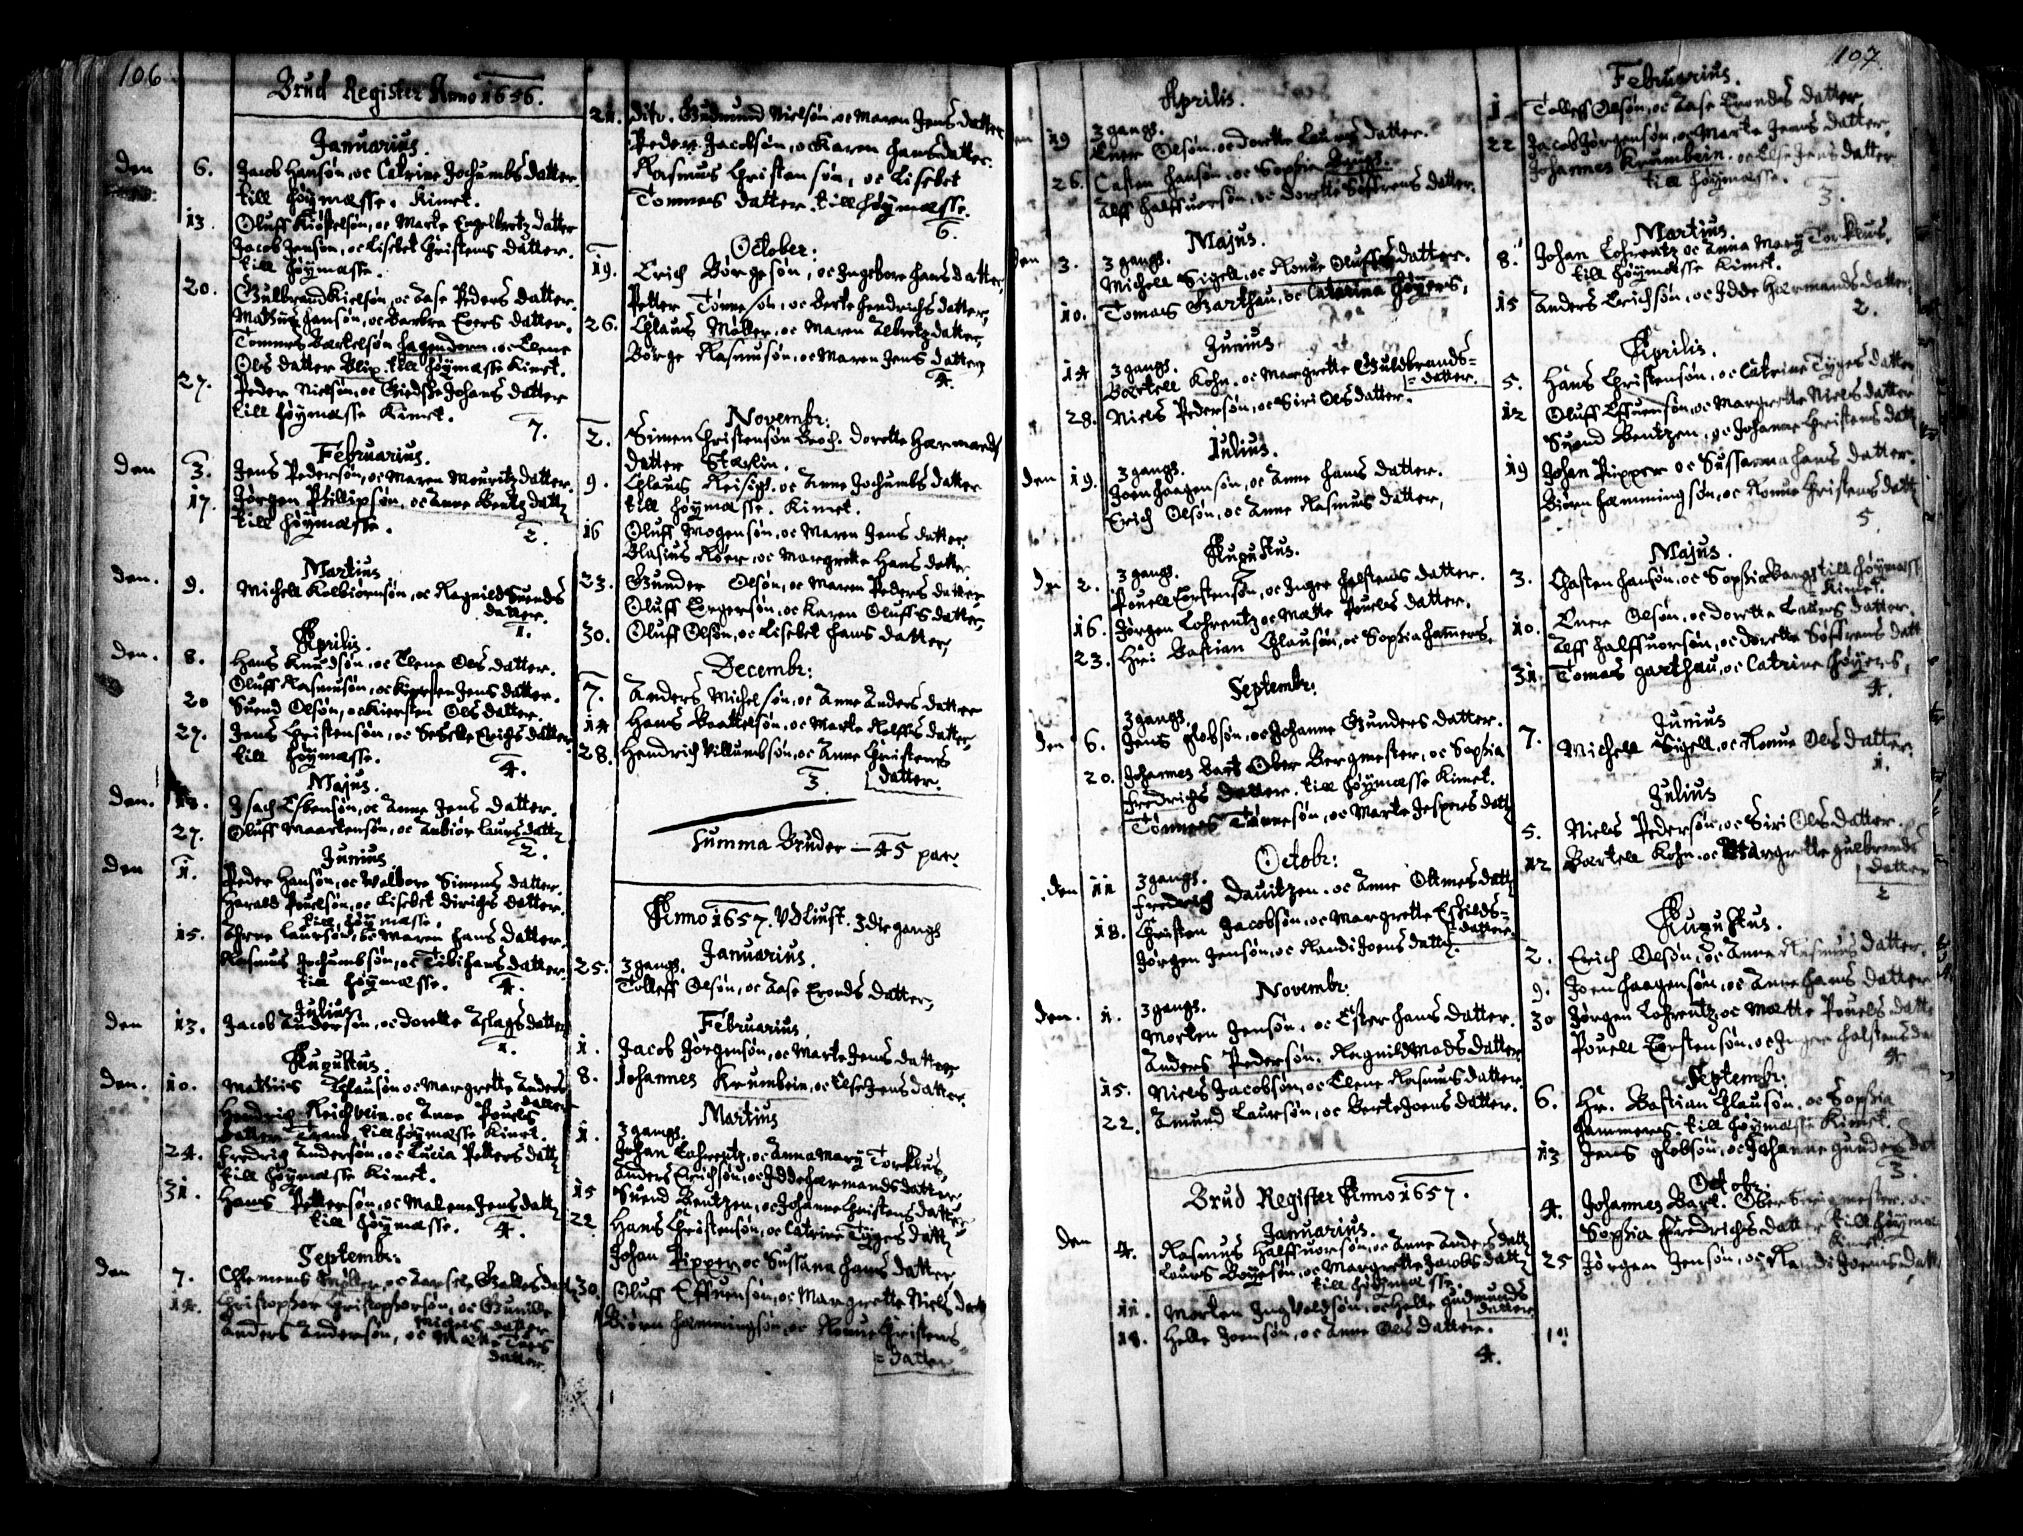 106
Brud Register Anno 1656.
Januarius.
den 6. Jacob Hansøn, oc Catrine Jochumbs datter.
till Høymæsse. Kimet.
13 Oluff Kiøstelsøn, oc Marte Engelbertz datter
Jacob Jensøn, oc Lisebet Christens datter.
till Høymæsse.
20. Gulbrand Kielsøn, oc Aase Peders datter.
Mathis Hansøn, oc Barbra Evers datter.
Tommes Bartelsøn Hagendorn, oc Elene
Ols datter Blix. till Høymæsse Kimet.
27. Peder Nielsøn, oc Giedske Johans datter
till Høymæsse Kimet.
7.
Februarius.
den 3. Jens Pedersøn, oc Maren Mouritz datter.
17. Jørgen Phillipsøn, oc Anne Bentz datt
till Høymæsse.
2.
Martius
den. 9. Michell Kolbiørnsøn, oc Ragnild Suends
datter.
1.
Aprilis.
den. 8. Hans Knudsøn, oc Elene Ols datter.
Oluff Rasmusøn, oc Kiersten Jens datter.
20 Suend Olsøn, oc Kiersten Ols datter.
27. Jens Christensøn, oc Sidsele Erichs datter
till Høymæsse.
4.
Majus.
den. 18. Isach Esbensøn, oc Anne Jens datter.
27. Oluff Maartensøn, oc Anbiør Laurs datt
2.
Junius
den 1. Peder Hansøn, oc Walbore Simens datter.
Harald Pouelsøn, oc Lisebet Dirichs datter.
till Høymæsse.
15. Arne Laursøn, oc Maren Hans datter.
Rasmus Jochumbsøn, oc Tibi Hans datter
till Høymæsse.
4.
Julius
den 13. Jacob Andersøn, oc Dorette Aslags datter
1.
Augustus.
den. 10. Mathias Clausøn oc Margrette Anders
datter
Hendrich Reichwein. oc Anne Pouels
datter Trane, till Høymæsse Kimet.
24. Fredrich Andersøn, oc Lucia Petters datt
till Høymæsse Kimet.
31. Hans Pettersøn, oc Malene Jens datt
till Høymæsse.
4.
Septembr:
den 7. Clemens Møller, oc Karsele Galles datt
14. Christopher Christophersøn, oc Gunilde
Nigels datter
Anders Andersøn, oc Mætte Toers
datter.
21. dito. Gudmund Nielsøn, oc Maren Jens datter
Peder Jacobsøn, oc Karen Hansdatter.
Rasmus Christensøn, oc Lisebet
Tommes datter. till Høymæsse.
6.
October:
19. Erich Børgesøn, oc Ingebore Hans datter,
Petter Tønnesøn, oc Berte Hendrichs datter,
26. Claus Møller, oc Maren Albretz datter,
Børge Rasmusøn, oc Maren Jens datter
4.
Novembr:
2. Simen Christensøn Broch. Dorette Harmands
datter Stærlin.
9. Claus Reisigs. oc Anne Jochumbs datter
till Høymæsse. Kimet.
16 Oluff Mogensøn, oc Maren Jens datter
Blasius Røer, oc Margrette Hans datter
23. Gunder Olsøn, oc Maren Peders datter
Oluff Engersøn, oc Karen Oluffs datter,
30. Oluff Olsøn, oc Lisebet Hans datter,
Decembr:
7. Anders Michelsøn, oc Anne Anders datter
14 Hans Baattelsøn, oc Marte Rolffs datter,
28. Hendrich Villumbsøn, oc Anne Christens
datter.
3.
Summa Bruder — 45 par.
Anno 1657. Vdliust. 3die gangs
Januarius.
25. 3 gangs.
Tolleff Olsøn, oc Aase Eronds datter,
Februarius
1. Jacob Jørgensøn, oc Marte Jens datter,
8. Johannes Krumbein, oc Else Jens datter.
Martius
1. 3 gangs.
Johan Lohrentz, oc Anna Mary Torklus,
Anders Erichsøn, oc Idde Harmands datter,
15 Suend Bentzen, oc Johanne Christens datter
22 Hans Christensøn, oc Catrine Tyges datt
Johan Pipper, oc Sussana Hans datter,
30. Oluff Effuensøn, oc Margrette Niels datt
Biørn Hammingsøn, oc Ronue Christens=
=datter
107.
Aprilis.
den 19 3 gangs.
Ener Olsøn, oc Dorette Laurs datter.
26. Casten Hansøn, oc Sophia Bangs.
Alff Halffuorsøn, oc Dorette Søffrens datter.
Majus.
den 3. 3 gangs.
Michell Sigell, oc Ronue Oluffs datter.
10. Tomas Garthau, oc Catarina Høyers,
Junius
14 3 gangs.
Bartell Kohn. oc Margrette Guldbrands=
=datter.
28. Niels Pedersøn, oc Siri Ols datter.
Julius.
den 19. 3 gangs.
Joen Haagensøn, oc Anne Hans datter.
Erich Olsøn, oc Anne Rasmus datter,
Augustus.
den 2. 3 gangs.
Pouell Torstensøn, oc Inger Holstens datter.
16. Jørgen Lohrentz oc Mætte Pouels datter.
23. Hr: Bastian Clausøn, oc Sophia Hamers.
Septembr:
3 gangs.
den 6. Jens Globsøn, oc Johanne Gunders datter.
20. Johannes Bart Ober Bergmester, oc Sophia
Fredrichs datter. till Høymæsse Kimet.
Tønnes Tønnesøn, oc Marte Jespers datt
Octobr:
den 11 3 gangs.
Fredrich Davitzen. oc Anne Ottmes datt
18. Christen Jacobsøn, oc Margrette Eskilds=
=datter.
Jørgen Jensøn, oc Randi Joens datt.
Novembr:
den. 1. 3 gangs.
Morten Jensøn, oc Ester Hans datter.
Anders Pedersøn. Ragnild Mads datter
15. Niels Jacobsøn, oc Elene Rasmus datter
22. Amund Laursøn, oc Berte Joens datter.
Brud Register Anno 1657.
Januarius.
den 4. Rasmus Halffuorsøn, oc Anne Anders datt
Laurs Boyesøn, oc Margrette Jacobs datt
till Høymæsse.
11. Morten Inguoldsøn, oc Helle Gudmunds
datter
18. Helle Joensøn, oc Anne Ols datter.
4.
Februarius.
1 Tolleff Olsøn, oc Aase Eronds datter,
22 Jacob Jørgensøn, oc Marte Jens datter,
Johannes Krumbein. oc Else Jens datter
till Høymæsse.
3.
Martius.
8. Johan Lohrentz oc Anna Mary Torklus.
till Høymæsse Kimet.
15 Anders Erichsøn, oc Idde Harmands datter
2.
Aprilis.
5. Hans Christensøn, oc Catrine Tyges datter
12 Oluff Effuensøn, oc Margrette Niels datter
Suend Bentzen, oc Johanne Christens datt
19 Johan Pipper oc Sussanna Hans datter.
Biørn Hammingsøn, oc Ronue Christens datt
5.
Majus.
3. Chasten Hansøn, oc Sophia Bangs till Høymæss
Kimet.
10. Ener Olsøn, oc Dorette Laurs datter.
Alff Halffuorsøn, oc Dorette Søffrens datt
31 Tomas Garthau, oc Catrine Høyers,
4.
Junius
7. Michell Sigell, oc Ronue Ols datter.
1.
Julius
5. Niels Pedersøn, oc Siri Ols datter.
12 Bartell Kohn. oc Margrette Gulbrands
datter
2
Augustus.
2. Erich Olsøn, oc Anne Rasmus datter.
9. Joen Haagensøn, oc Anne Hans datter
30 Jørgen Lohrentz oc Mætte Pouels datt
Pouell Torstensøn, oc Inger Holstens da
4
Septembr:
6. Hr. Bastian Clausøn, oc Sophia
Hammers. till Høymæsse Kimet.
13 Jens Globsøn, oc Johanne Gunders dat
3.
Octobr:
4. Johannes Bart. Ober Bergmester. oc
Sophia Fredrichs datter till Høymæ
Kimet.
25 Jørgen Jensøn, oc Randi Joens datt